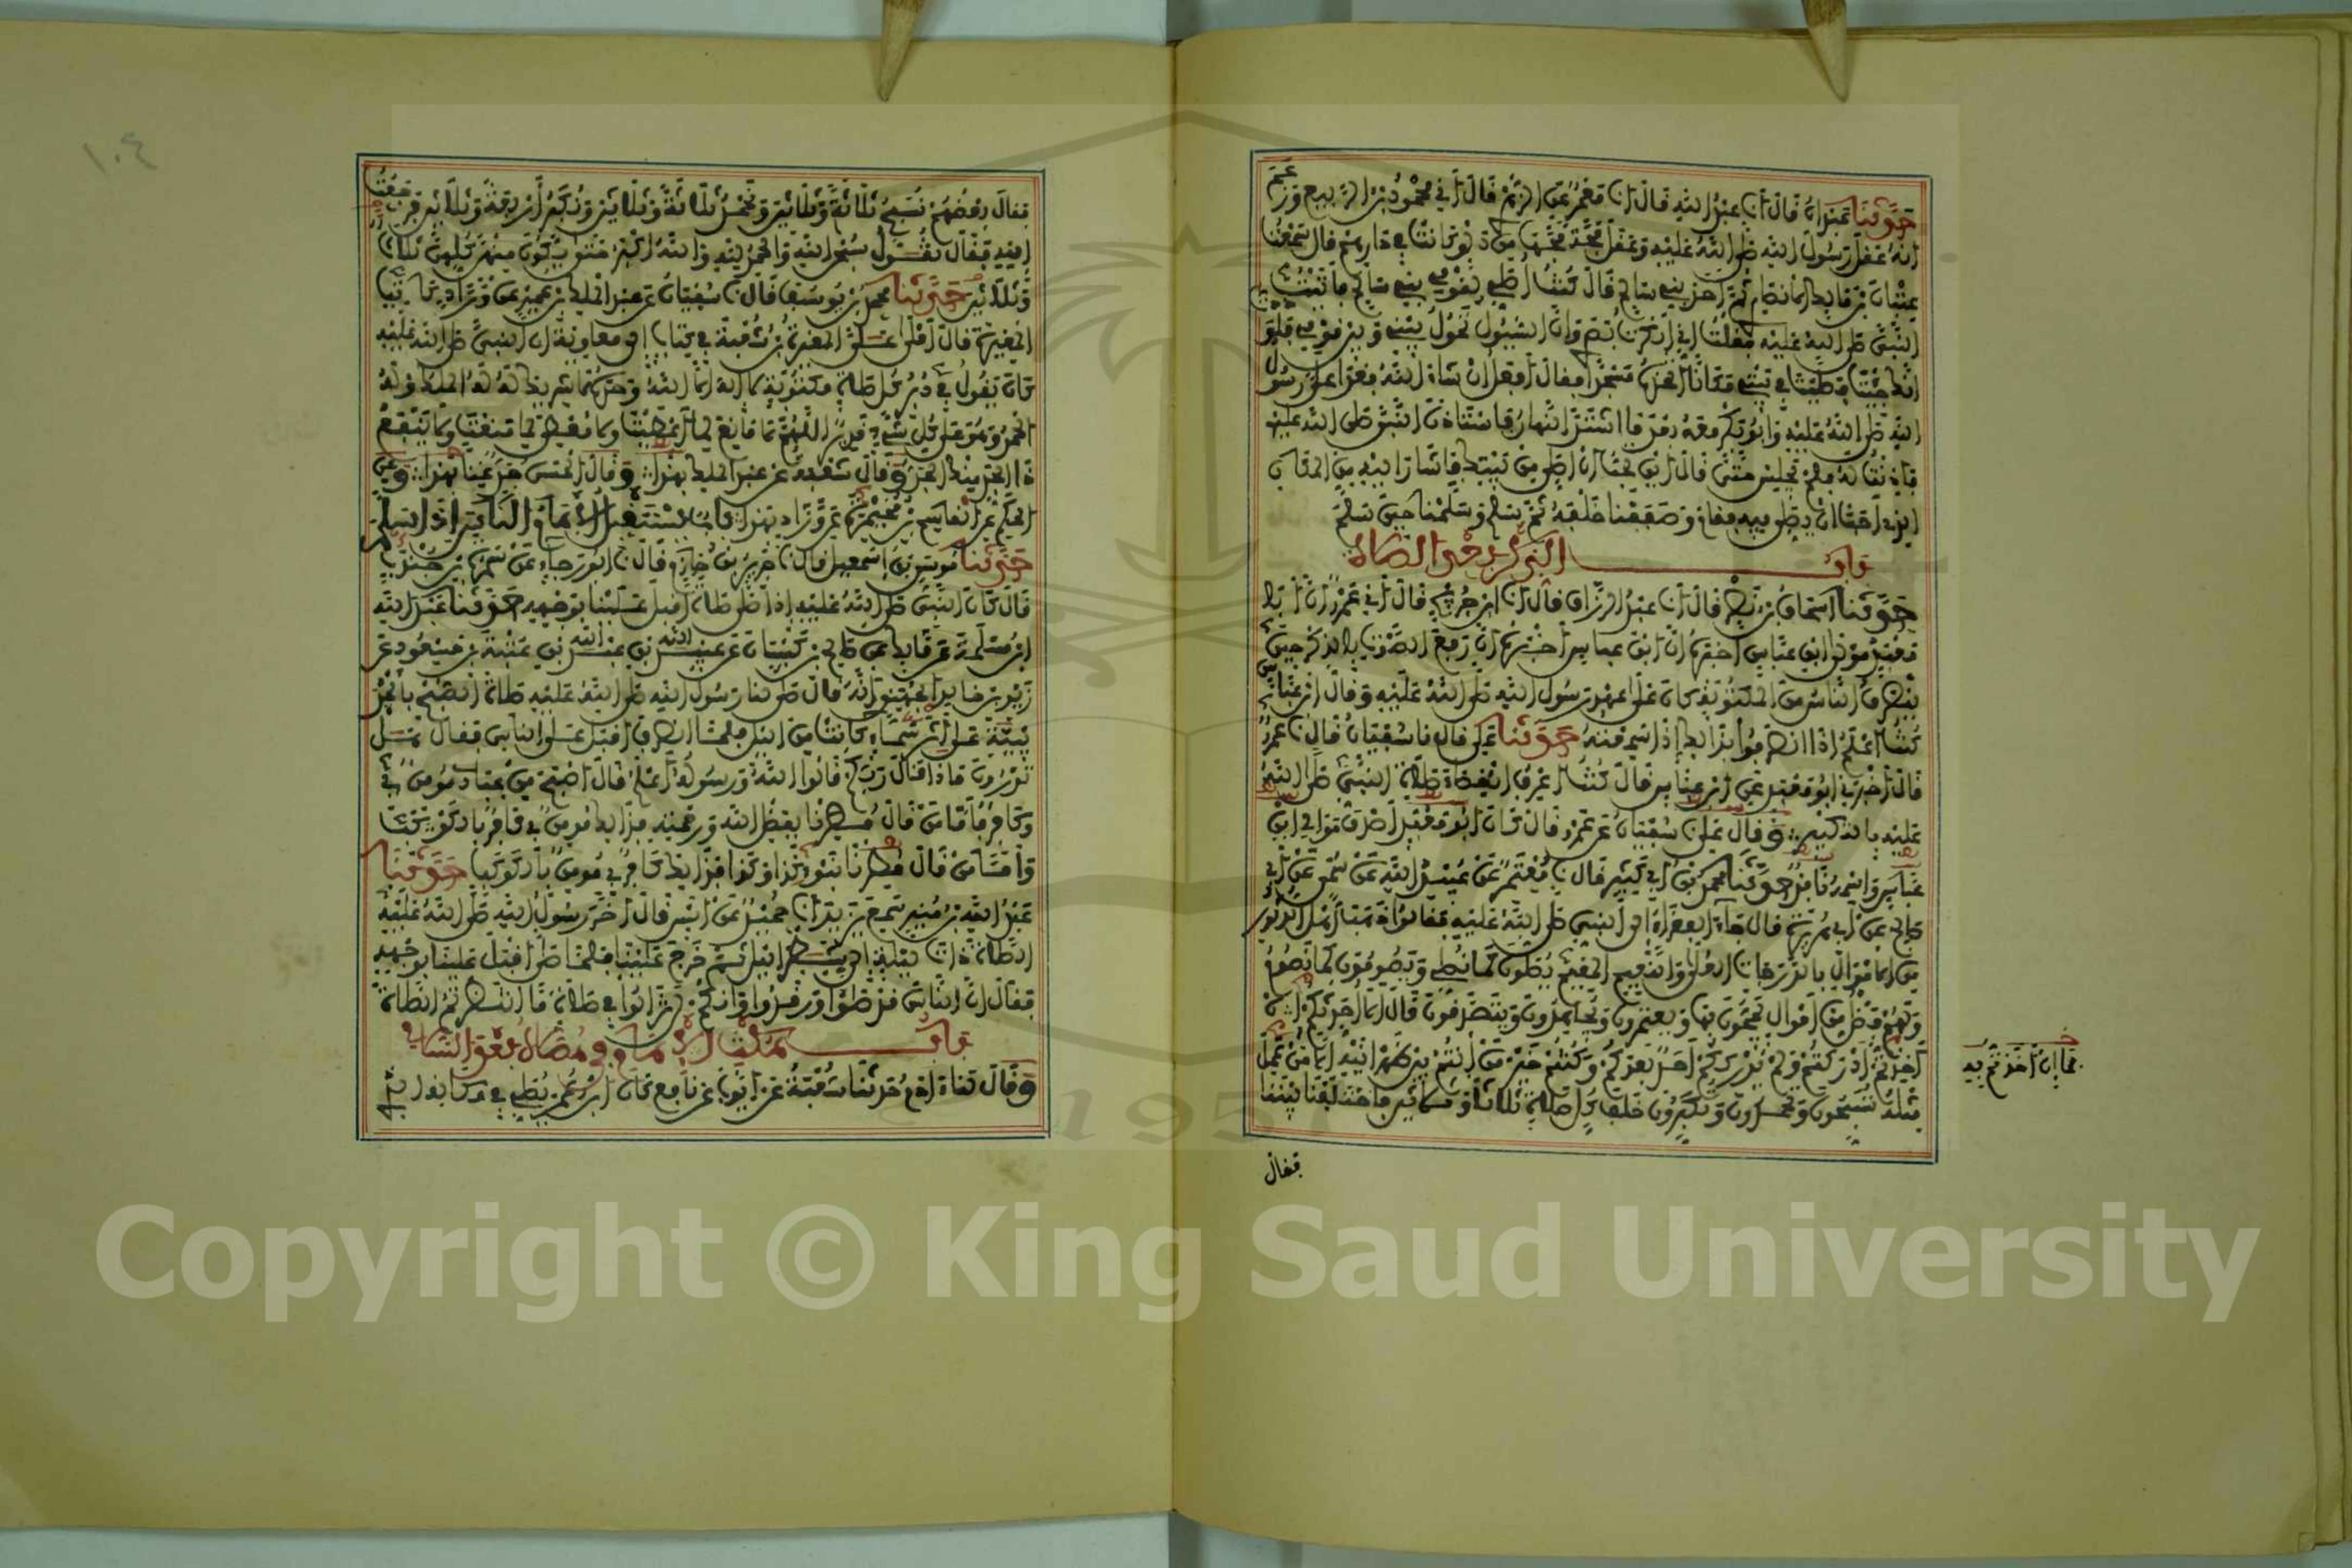 حدثنا عبدان قال انا عبد الله قال انا معمر عن الزهري قال اني محمود بن الربيع وزعم
انه عقل رسول الله صلى الله عليه وعقل مجة مجها من دلو كانت في دارهم قال سمعت
عتبان بن مالك الانصاري ثم احد بني سالم قال كنت اصلي لقومي بني سالم فاتيت
النبي صلى الله عليه فقلت اني انكرت بصري وان السيول تحول بيني وبين قومي فلوددت
انك جئت فصليت في بيتي مكانا اتخذه مسجدا فقال افعل ان شاء الله فغدا علي رسول
الله صلى الله عليه وابو بكر معه بعد ما اشتد النهار فاستاذن النبي صلى الله عليه
فاذنت له فلم يجلس حتى قال اين تحب ان اصلي من بيتك فاشار اليه من المكان
الذي احب ان يصلي فيه فقام وصففنا خلفه ثم سلم وسلمنا حين سلم
باب الذكر بعد الصلاة
حدثنا اسحاق بن نصر قال انا عبد الرزاق قال انا ابن جريج قال اني عمرو ان ابا
معبد مولى ابن عباس اخبره ان ابن عباس اخبره ان رفع الصوت بالذكر حين
ينصرف الناس من المكتوبة كان على عهد رسول الله صلى الله عليه وقال ابن عباس
كنت اعلم اذا انصرفوا بذلك اذا سمعته حدثنا علي قال نا سفيان قال نا عمرو
قال اخبرني ابو معبد عن ابن عباس قال كنت اعرف انقضاء صلاة النبي صلى الله
عليه بالتكبير وقال علي نا سفيان عن عمرو قال كان ابو معبد اصدق موالي ابن
عباس واسمه نافذ حدثنا محمد بن ابي بكر قال نا معتمر عن عبيد الله عن سمي عن ابي
صالح عن ابي هريرة قال جاء الفقراء الى النبي صلى الله عليه فقالوا ذهب اهل الدثور
من الاموال بالدرجات العلى والنعيم المقيم يصلون كما نصلي ويصومون كما نصوم
ولهم فضل من اموال يحجون بها ويعتمرون ويجاهدون ويتصدقون قال الا احدثكم ان
اخذتم ادركتم ولم يدرككم احد بعدكم وكنتم خير من انتم بين ظهرانيه الا من عمل
مثله تسبحون وتحمدون وتكبرون خلف كل صلاة ثلاثا وثلاثين فاختلفنا بيننا
بما ان اخذتم به
فقال
١٠٤
فقال بعضهم نسبح ثلاثة وثلاثين ونحمد ثلاثة وثلاثين ونكبر اربعة وثلاثين فرجعت
اليه فقال تقول سبحان الله والحمد لله والله اكبر حتى يكون منهن كلهن ثلاث
وثلاثين حدثنا محمد بن يوسف قال نا سفيان عن عبد الملك بن عمير عن وراد كاتب
المغيرة قال املى علي المغيرة بن شعبة في كتاب الى معاوية ان النبي صلى الله عليه
كان يقول في دبر كل صلاة مكتوبة لا اله الا الله وحده لا شريك له له الملك وله
الحمد وهو على كل شيء قدير اللهم لا مانع لما اعطيت ولا معطي لما منعت ولا ينفع
ذا الجد منك الجد وقال شعبة عن عبد الملك بهذا وقال الحسن جد غنى بهذا وعن
الحكم عن القاسم بن مخيمرة عن وراد بهذا باب يستقبل الامام الناس اذا سلم
حدثنا موسى بن اسمعيل قال نا جرير بن حازم قال نا ابو رجاء عن سمرة بن جندب
قال كان النبي صلى الله عليه اذا صلى صلاة اقبل علينا بوجهه حدثنا عبد الله
ابن مسلمة عن مالك عن صالح بن كيسان عن عبيد الله بن عبد الله بن عتبة بن مسعود عن
زيد بن خالد الجهني انه قال صلى لنا رسول الله صلى الله عليه صلاة الصبح بالحديبية
على اثر سماء كانت من الليل فلما انصرف اقبل على الناس فقال هل
تدرون ماذا قال ربكم قالوا الله ورسوله اعلم قال اصبح من عبادي مومن بي
وكافر فاما من قال مطرنا بفضل الله ورحمته فذلك مومن بي كافر بالكوكب
واما من قال مطرنا بنوء كذا وكذا فذلك كافر بي مومن بالكوكب حدثنا
عبد الله بن منير سمع يزيد انا حميد عن انس قال اخر رسول الله صلى الله عليه
الصلاة ذات ليلة الى شطر الليل ثم خرج علينا فلما صلى اقبل علينا بوجهه
فقال ان الناس قد صلوا ورقدوا وانكم لن تزالوا في صلاة ما انتظرتم الصلاة
باب مكث الامام في مصلاه بعد السلام
وقال لنا ادم حدثنا شعبة عن ايوب عن نافع كان ابن عمر يصلي في مكانه الذي
Copyright © King Saud University
1957